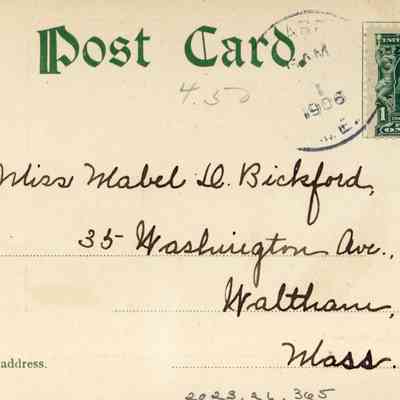 Post Card.
AM
1
1906
ME.
4.50
1
Miss Mabel D. Bickford,
35 Washington Ave.,
Waltham,
Mass.
address.
2023.26.365